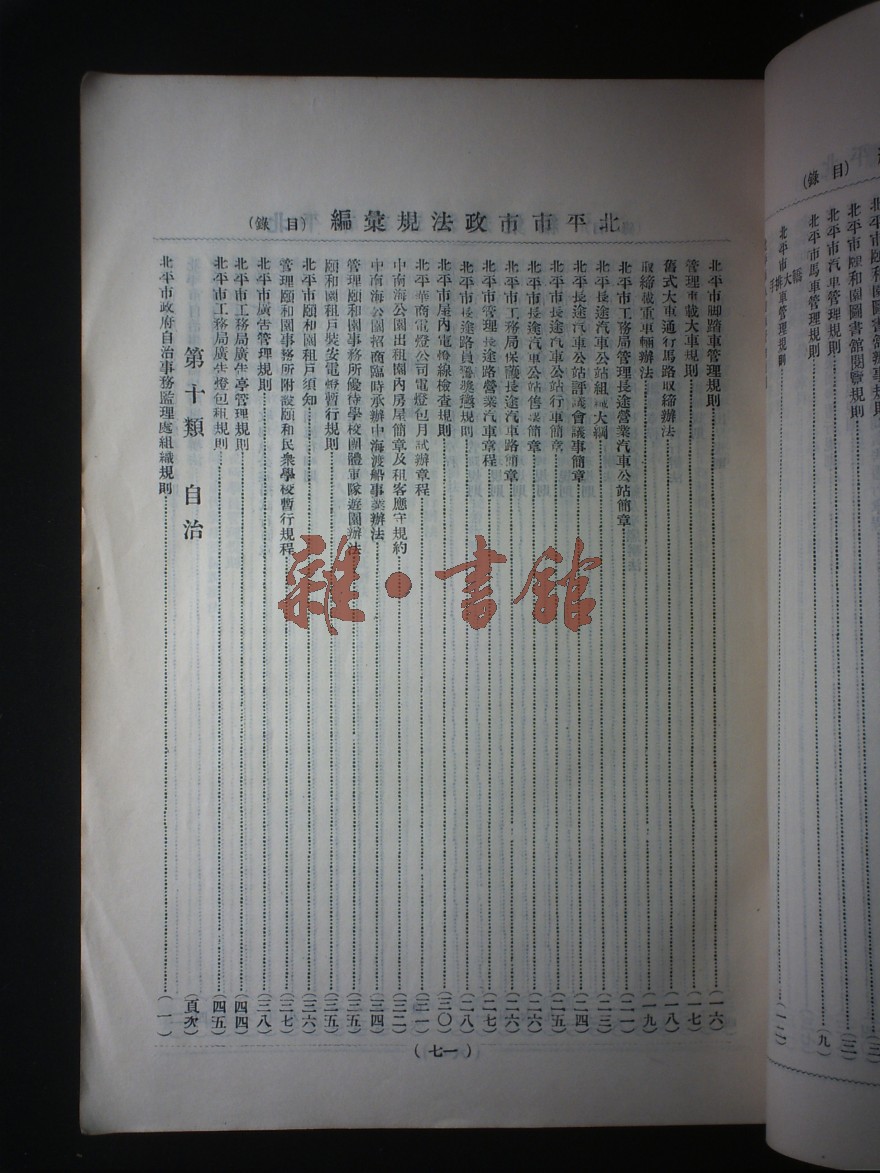 北平市市政法規彙編 (目錄)
北平市脚踏車管理規則 (一六)
管理重載大車規則 (一七)
舊式大車通行馬路取締辦法 (一八)
取締載重車輛辦法 (一九)
北平市工務局管理長途營業汽車公站簡章 (二一)
北平長途汽車公站組織大綱 (二三)
北平長途汽車公站評議會議事簡章 (二四)
北平市長途汽車公站行車簡章 (二五)
北平市長途汽車公站售票簡章 (二六)
北平市工務局保護長途汽車路簡章 (二六)
北平市管理長途路營業汽車章程 (二七)
北平市長途路員警獎懲規則 (二八)
北平市屋內電燈線檢查規則 (三〇)
北平華商電燈公司電燈包月試辦章程 (三一)
中南海公園出租園內房屋簡章及租客應守規約 (三二)
中南海公園招商臨時承辦中海渡船事業辦法 (三四)
管理頤和園事務所優待學校團體軍隊遊園辦法 (三五)
頤和園租戶裝安電燈暫行規則 (三五)
北平市頤和園租戶須知 (三六)
管理頤和園事務所附設頤和民衆學校暫行規程 (三七)
北平市廣告管理規則 (三八)
北平市工務局廣告亭管理規則 (四四)
北平市工務局廣告燈包租規則 (四五)
第十類 自治 (頁次)
北平市政府自治事務監理處組織規則 (一)
(一七)
(目錄)
北平市頤和園圖書館閱覽規則 (三)
北平市汽車管理規則 (三)
北平市馬車管理規則 (九)
雜·書館